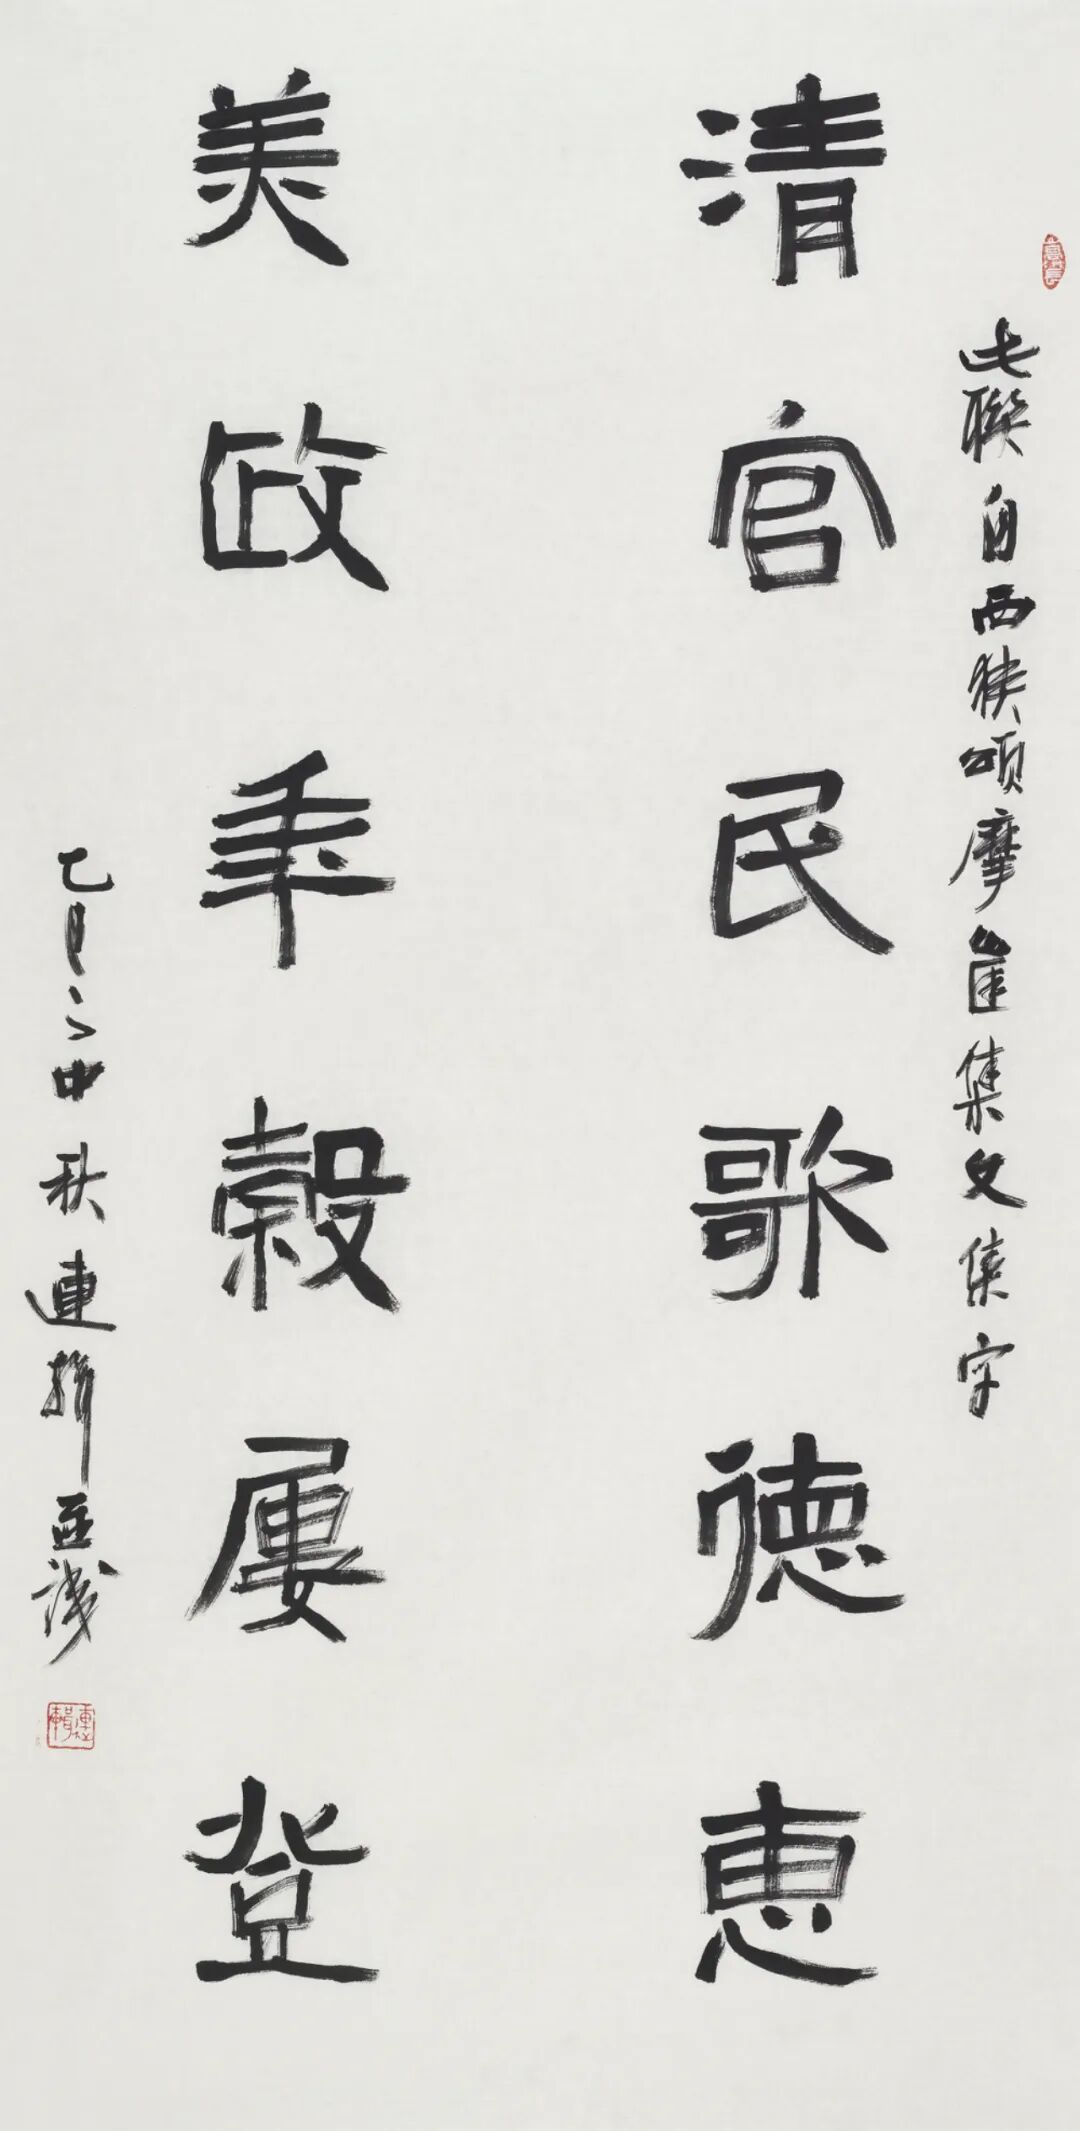 此聯自西狹頌摩崖集文集字
清官民歌德惠
美政年穀屢登
乙巳之中秋連輯並識
連輯